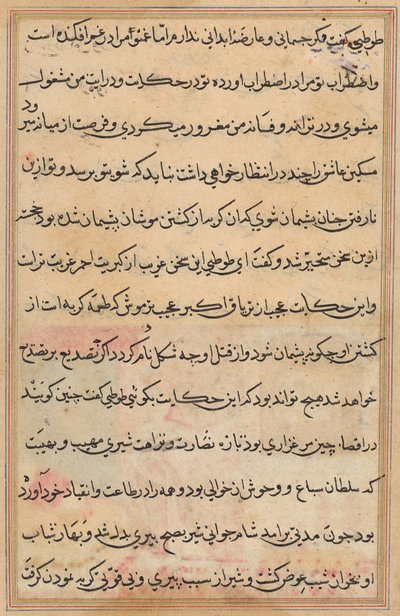 طوطی گفت فکر جسمانی و عارضهٔ ابدانی ندارم اما غم تو مرا در غم افکنده است
واضطراب تو مرا در اضطراب اورده تو در حکایت و درایت من مشغول
میشوی و در ترانه و فسانه من مغرور میکردی و فرصت از میانه میرود
مسکین عاشق را چند در انتظار خواهی داشت نباید که شوی تو برسد و تو ازین
نارفتن چنان پشیمان شوی که ان کربه از کشتن موشان پشیمان شده بود خجسته
ازین سخن متحیر شد و کفت ای طوطی این سخن غریب از کبریت احمر غریب تر است
واین حکایت عجیب از تریاق اکبر عجیب تر موش که طعمهٔ کربه است از
کشتن او چکونه پشیمان شود و از قتل او چه شکل نام کردد اکر تصدیع بر تصدیع
نخواهد شد هیچ تواند بود که این حکایت بکوئی طوطی کفت چنین کویند
در اقصاء چین مرغزاری بود تازه نضارت و نزاهت شیری مهیب و بهیبت
که سلطان سباع و وحوش ان حوالی بود و همه را در طاعت و انقیاد خود آورده
بود چون مدتی برامد شام جوانی شیر بصبح پیری بدل شد و بهار شباب
او بخزان شیب عوض کشت و شیر از سبب پیری و بی قوتی کربه نمودن کرفت